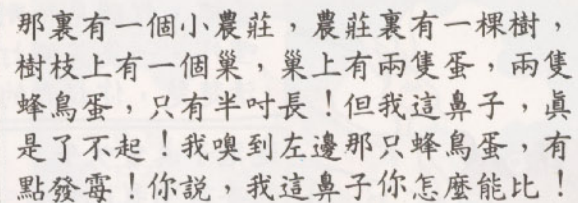 那裏有一個小農莊，農莊裏有一棵樹，
樹枝上有一個巢，巢上有兩隻蛋，兩隻
蜂鳥蛋，只有半吋長！但我這鼻子，眞
是了不起！我嗅到左邊那只蜂鳥蛋，有
點發霉！你説，我這鼻子你怎麼能比！